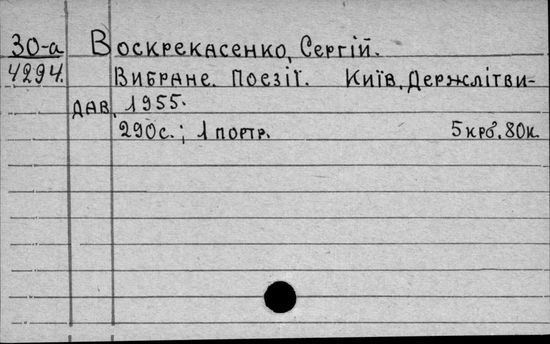 30-а Воскрекасенко, Сергій.
4294. Вибране. Поезії. Київ, Держлітви-
дав, 1955.
290с.; 1 портр. 5 крб. 80к.